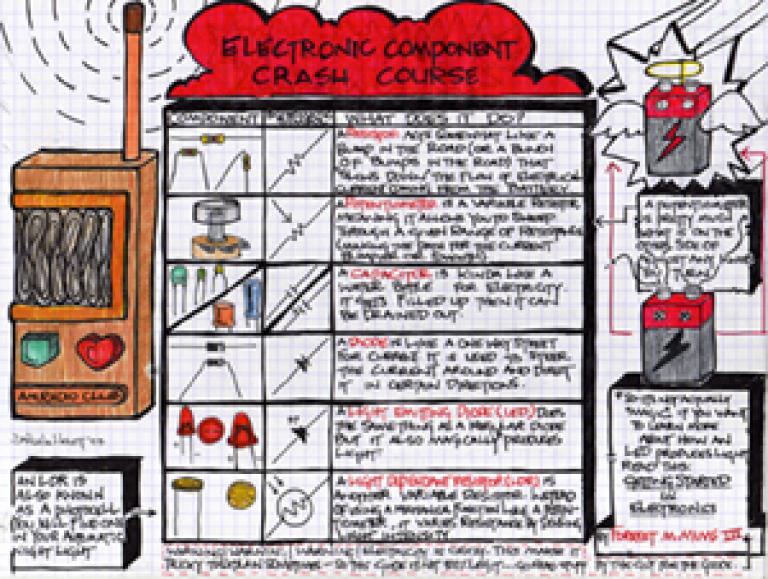 ELECTRONIC COMPONENT
CRASH COURSE
COMPONENT
WHAT DOES IT DO?
A RESISTOR ACTS SOMEWHAT LIKE A
BUMP IN THE ROAD (OR A BUNCH
OF BUMPS IN THE ROAD) THAT
THE FLOW OF ELECTRICAL
CURRENT FROM THE BATTERY.
A POTENTIOMETER IS A VARIABLE RESISTOR,
MEANING IT ALLOWS YOU TO
THROUGH A GIVEN RANGE OF RESISTANCE
THE PATH FOR THE CURRENT
A CAPACITOR IS KINDA LIKE A
WATER BOTTLE FOR ELECTRICITY.
IT GETS FILLED UP THEN IT CAN
BE DRAINED OUT.
A DIODE IS LIKE A ONE WAY STREET
FOR CURRENT. IT IS USED TO STEER
THE CURRENT AROUND AND DIRECT
IT IN CERTAIN DIRECTIONS.
A LIGHT EMITTING DIODE (LED) DOES
THE SAME THING AS A REGULAR DIODE
BUT IT ALSO MAGICALLY PRODUCES
LIGHT!*
A LIGHT DEPENDANT RESISTOR (LDR) IS
ANOTHER VARIABLE RESISTOR. INSTEAD
OF USING A MECHANICAL FUNCTION LIKE A POTEN-
TIOMETER, IT VARIES RESISTANCE BY SENSING
LIGHT INTENSITY
A POTENTIOMETER
IS PRETTY MUCH
WHAT IS ON THE
OTHER SIDE OF
ANY KNOB
YOU TURN
*IT'S NOT ACTUALLY
MAGIC. IF YOU WANT
TO LEARN MORE
ABOUT HOW AN
LED PRODUCES LIGHT
READ THIS:
GETTING STARTED
IN
ELECTRONICS
BY FORREST M. MIMS III
AM RADIO CLUB
AN LDR IS
ALSO KNOWN
AS A PHOTOCELL
YOU WILL FIND ONE
IN YOUR AUTOMATIC
NIGHT LIGHT
WARNING! WARNING! WARNING! ELECTRICITY IS THIS MAKES IT